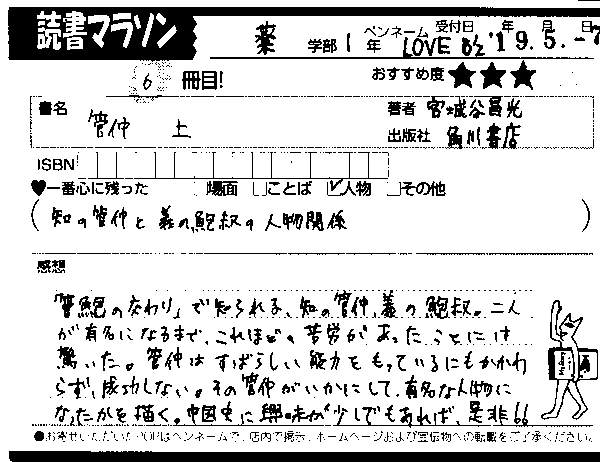 読書マラソン
薬 学部 1 年 ペンネーム LOVE B'z 受付日 '19.5.-7 年 月 日
6 冊目! おすすめ度 ★★★
書名 管仲 上
著者 宮城谷昌光
出版社 角川書店
ISBN
♥一番心に残った □場面 □ことば ☑人物 □その他
(知の管仲と義の鮑叔の人物関係)
感想
「管鮑の交わり」で知られる、知の管仲、義の鮑叔。二人
が有名になるまで、これほどの苦労があったことには
驚いた。管仲はすばらしい能力をもっているにもかかわ
らず、成功しない。その管仲がいかにして、有名な人物に
なったかを描く。中国史に興味が少しでもあれば、是非!!
●お寄せいただいたPOPはペンネームで、店内で掲示、ホームページおよび宣伝物への転載をご了承ください。